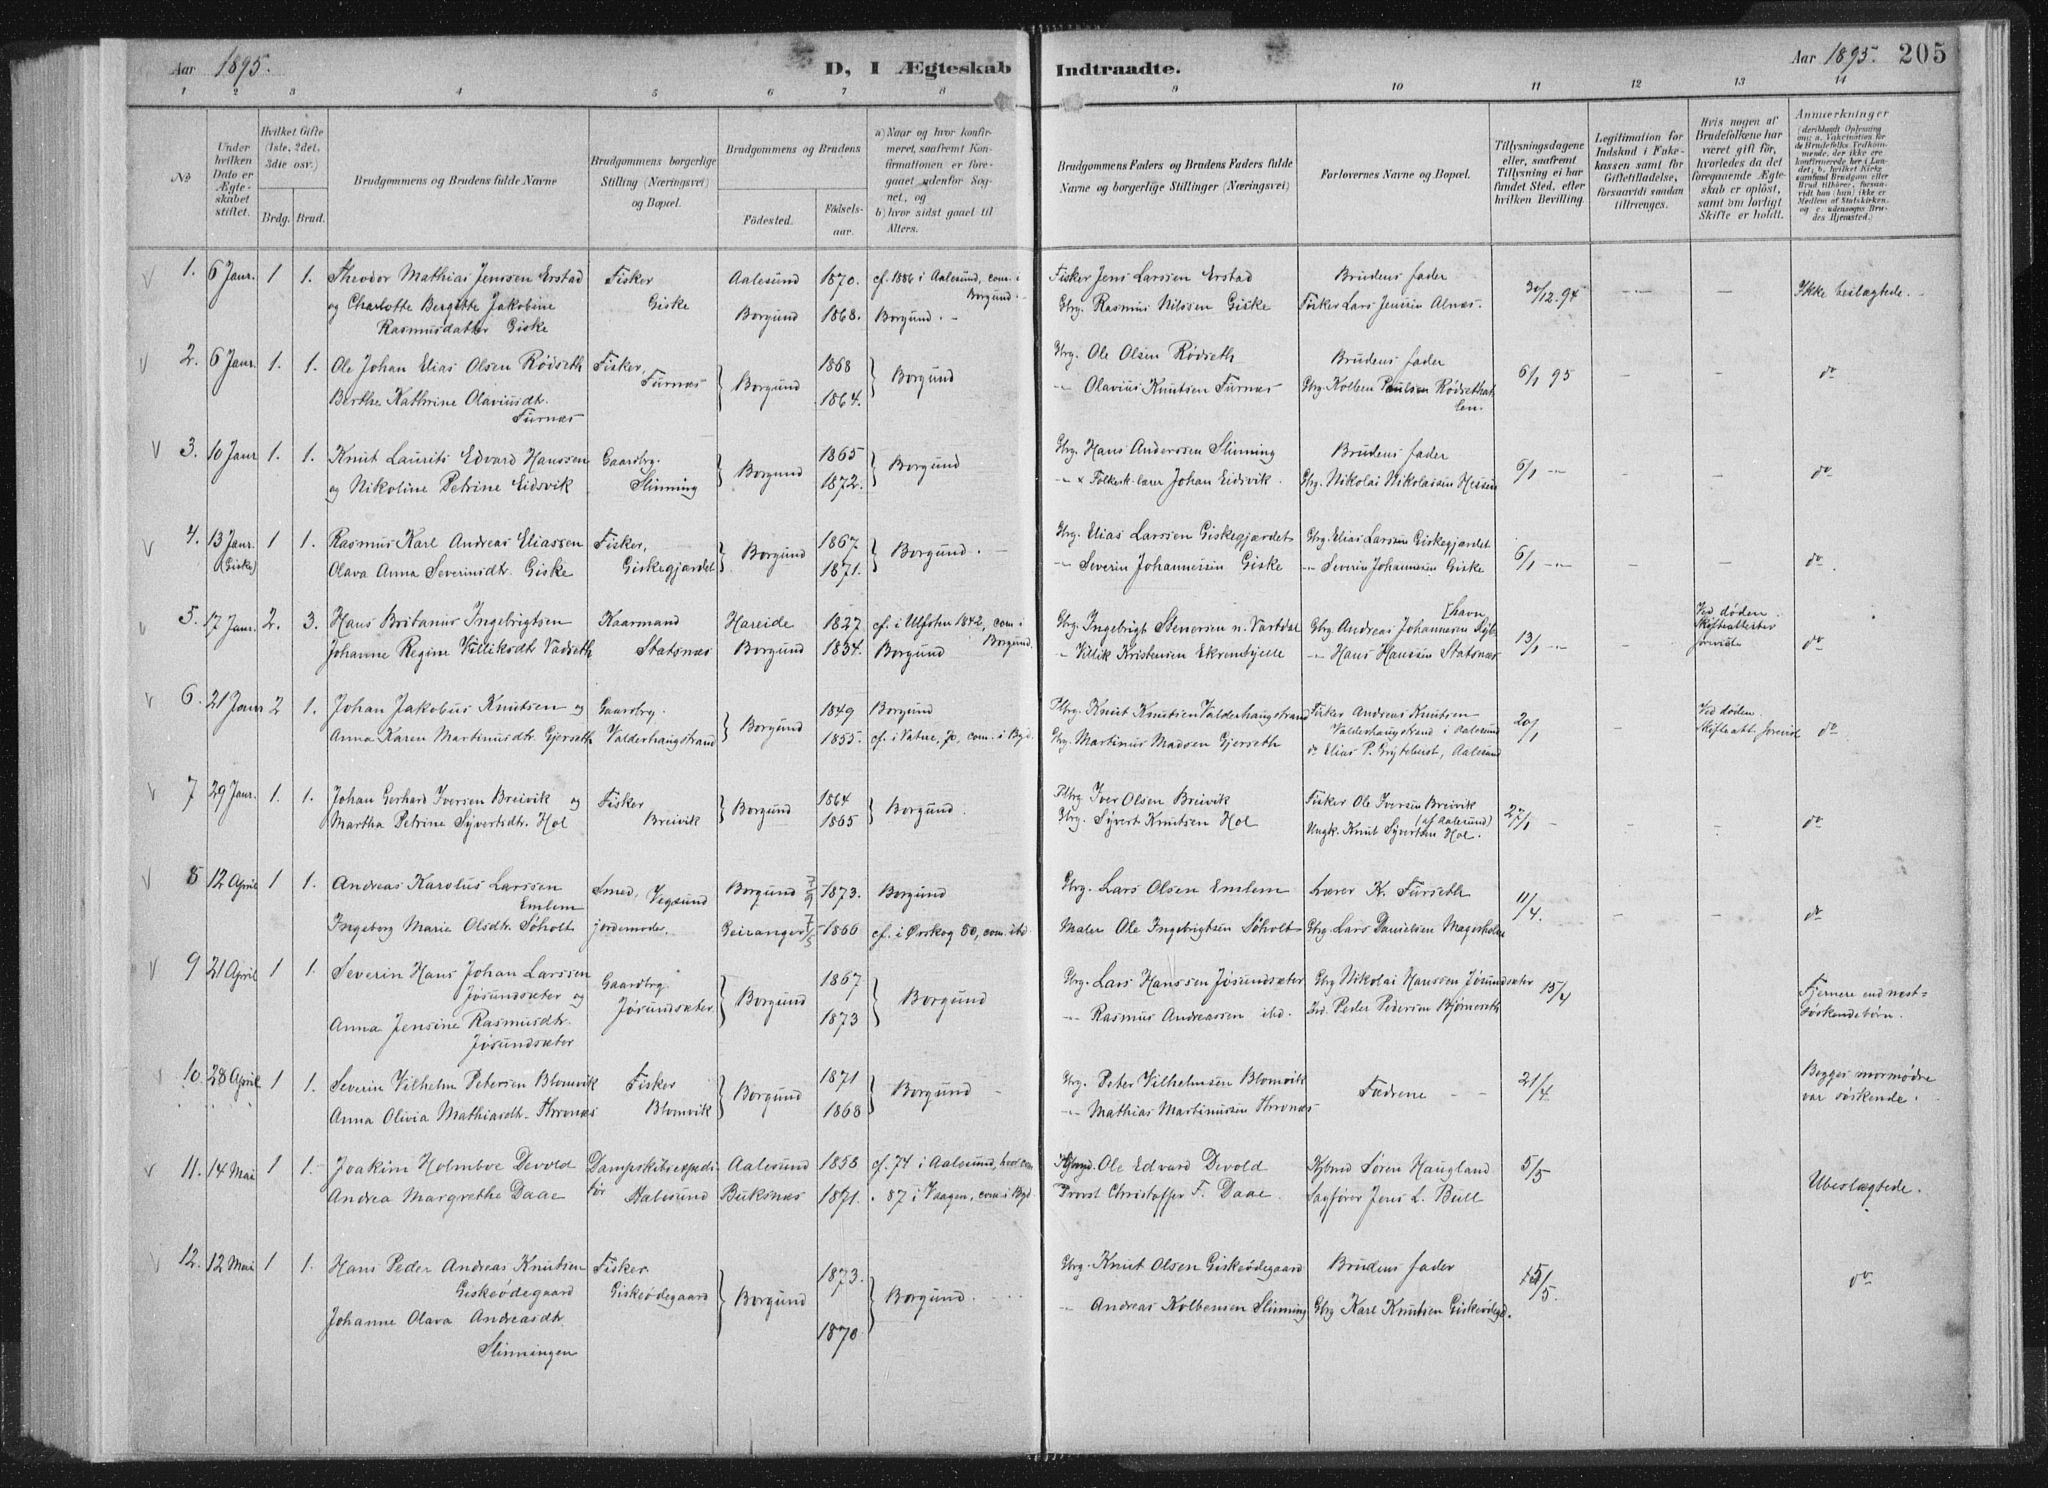 Aar 1895.
D, I Ægteskab Indtraadte.
Aar 1895. 205
1 2 3 4 5 6 7 8 9 10 11 12 13 14
No
Under hvilken Dato er Ægteskabet stiftet.
Hvilket Gifte (1ste, 2det, 3die osv.)
Brdg. Brud.
Brudgommens og Brudens fulde Navne
Brudgommens borgerlige Stilling (Næringsvei) og Bopæl.
Brudgommens og Brudens
Fødested. Fødselsaar.
a) Naar og hvor konfirmeret, saafremt Konfirmationen er foregaaet udenfor Sognet, og
b) hvor sidst gaaet til Alters.
Brudgommens Faders og Brudens Faders fulde Navne og borgerlige Stillinger (Næringsvei)
Forlovernes Navne og Bopæl.
Tillysningsdagene eller, saafremt Tillysning ei har fundet Sted, efter hvilken Bevilling.
Legitimation for Indskud i Enkekassen samt for Giftetilladelse, forsaavidt saadan tiltrænges.
Hvis nogen af Brudefolkene har været gift før, hvorledes da det foregaaende Ægteskab er opløst, samt om lovligt Skifte er holdt.
Anmærkninger
(deriblandt Oplysning om: a. Vakcination for de Brudefolks Vedkommende, der ikke ere konfirmerede her i Landet; b. hvilket Kirkesamfund Brudgom eller Brud tilhører, forsaavidt han (hun) ikke er Medlem af Statskirken, og c. udensogns Brudes Hjemsted.)
1. 6 Janr. 1 1. Theodor Mathias Jenssen Erstad Fisker Aalesund 1870. cf. 1886 i Aalesund, com. i Borgund. Fisker Jens Larssen Erstad Brudens fader 30/12.94 Ikke beslægtede.
og Charlotte Bergitte Jakobine Giske Borgund 1868. Borgund. Gbrg. Rasmus Nilssen Giske Fisker Lars Jenssen Alnæs
Rasmusdatter Giske
2. 6 Janr. 1. 1. Ole Johan Elias Olsen Rødseth Fisker, Borgund 1868 Borgund Gbrg. Ole Olsen Rødseth Brudens fader 6/1 95 do
Berthe Kathrine Olaviusdtr. Furnæs 1864. Olavius Knutsen Furnæs Gbrg. Kolben Paulsen Rødsethatlen.
Furnæs
3. 10 Janr 1. 1. Knut Laurits Edvard Hanssen Gaardbrg. Borgund 1865 Borgund Gbrg. Hans Anderssen Slinning Brudens fader 6/1 do
og Nikoline Petrine Eidsvik Slinning 1872. Folkesk. lærer Johan Eidsvik. Gbrg. Nikolai Nikolaisen Hessen
4. 13 Janr. 1 1. Rasmus Karl Andreas Eliassen Fisker, Borgund 1867 Borgund. Gbrg. Elias Larssen Giskegjærdet Gbrg. Elias Larssen Giskegjærdet 6/1 do
(Giske) Olava Anna Severinsdtr. Giske Giskegjærdet 1871. Severin Johannessen Giske Severin Johannessen Giske
5. 17 Janr. 2. 3. Hans Britanus Ingebrigtsen Kaarmand Hareide 1827 cf. i Ulfsten 1842, com. i Borgund Gbrg. Ingebrigt Stenersen n. Vartdal Gbrg. Andreas Johannessen [havn 13/1 Ved døden. Skifteattester foreviste do
Johanne Regine Villiksdt Vadseth Statsnæs Borgund 1834. Borgund Villik Kristensen Ekremsjelle Hans Hanssen Statsnæs
6. 21 Janr 2 1. Johan Jakobus Knutsen og Gaardbrg. Borgund 1849 Borgund Pbrg. Knut Knutsen Valderhaugstrand Fisker Andreas Knutsen Valderhaugstrand i Aalesund 20/1 Ved døden Skifteatt. forevist do
Anna Karen Martinusdtr. Gjerseth Valderhaugstrand 1855. cf. i Vatne, 70, com. i Bgd. Gbrg. Martinus Madsen Gjerseth do Elias P. Grytehest, Aalesund
7 29 Janr. 1. 1. Johan Gerhard Iversen Breivik og Fisker Borgund 1864 Borgund. Pbrg. Iver Olsen Breivik Fisker Ole Iversen Breivik (af Aalesund) 27/1 do
Martha Petrine Syvertsdtr. Hol Breivik 1865 Gbrg. Syvert Knutsen Hol Ungk. Knut Syvertsen Hol.
8 12 April 1 1. Andreas Karolus Larssen Emlem Smed, Vegsund Borgund 7/9 1873. Borgund Gbrg. Lars Olsen Emlem Lærer K. Furseth 11/4. do
Ingeborg Marie Olsdtr. Søholt jordemoder. Geiranger 7/5 1866 cf. i Ørskog 80, com. ibd Maler Ole Ingebrigtsen Søholt Gbrg. Lars Danielsen Magerholm
9 21 April 1 1. Severin Hans Johan Larssen Gaardbrg. Borgund 1867 Borgund Gbrg. Lars Hanssen Jøsundsæter Gbrg Nikolai Hanssen Jøsundsæter 15/4 Fjernere end næst-søskendebørn.
Jøsundsæter og Jøsundsæter.
Anna Jensine Rasmusdtr. 1873 Rasmus Andreassen ibd. Ind. Peder Pedersen Bjørneseth
Jøsundsæter
10. 28 April 1 1. Severin Vilhelm Petersen Blomvik Fisker Borgund 1871 Borgund Gbrg. Peter Vilhelmsen Blomvik Fædrene 21/4 Begges mormødre var søskende.
Anna Olivia Mathiasdtr. Thronæs Blomvik 1868 Mathias Martinussen Thronæs
11. 14 Mai 1 1. Joakim Holmboe Devold Dampskibsexpeditør Aalesund 1858 cf. 74 i Aalesund, Kjbmd. Ole Edvard Devold Kjbmd Søren Haugland 5/5 Ubeslægtede.
Andrea Margrethe Daae Aalesund Buksnæs 1871. 87 i Vaagen, com. i Bgd. Provst Christoffer F. Daae. Sagfører Jens L. Bull
12. 12 Mai 1 1. Hans Peder Andreas Knutsen Fisker Borgund 1873. Borgund. Gbrg. Knut Olsen Giskeødegaard Brudens fader 5/5. do
Giskeødegaard Giskeødegaard
Johanne Olava Andreasdtr. 1870 Andreas Kolbensen Slinning Gbrg Karl Knutsen Giskeødegd.
Slinningen